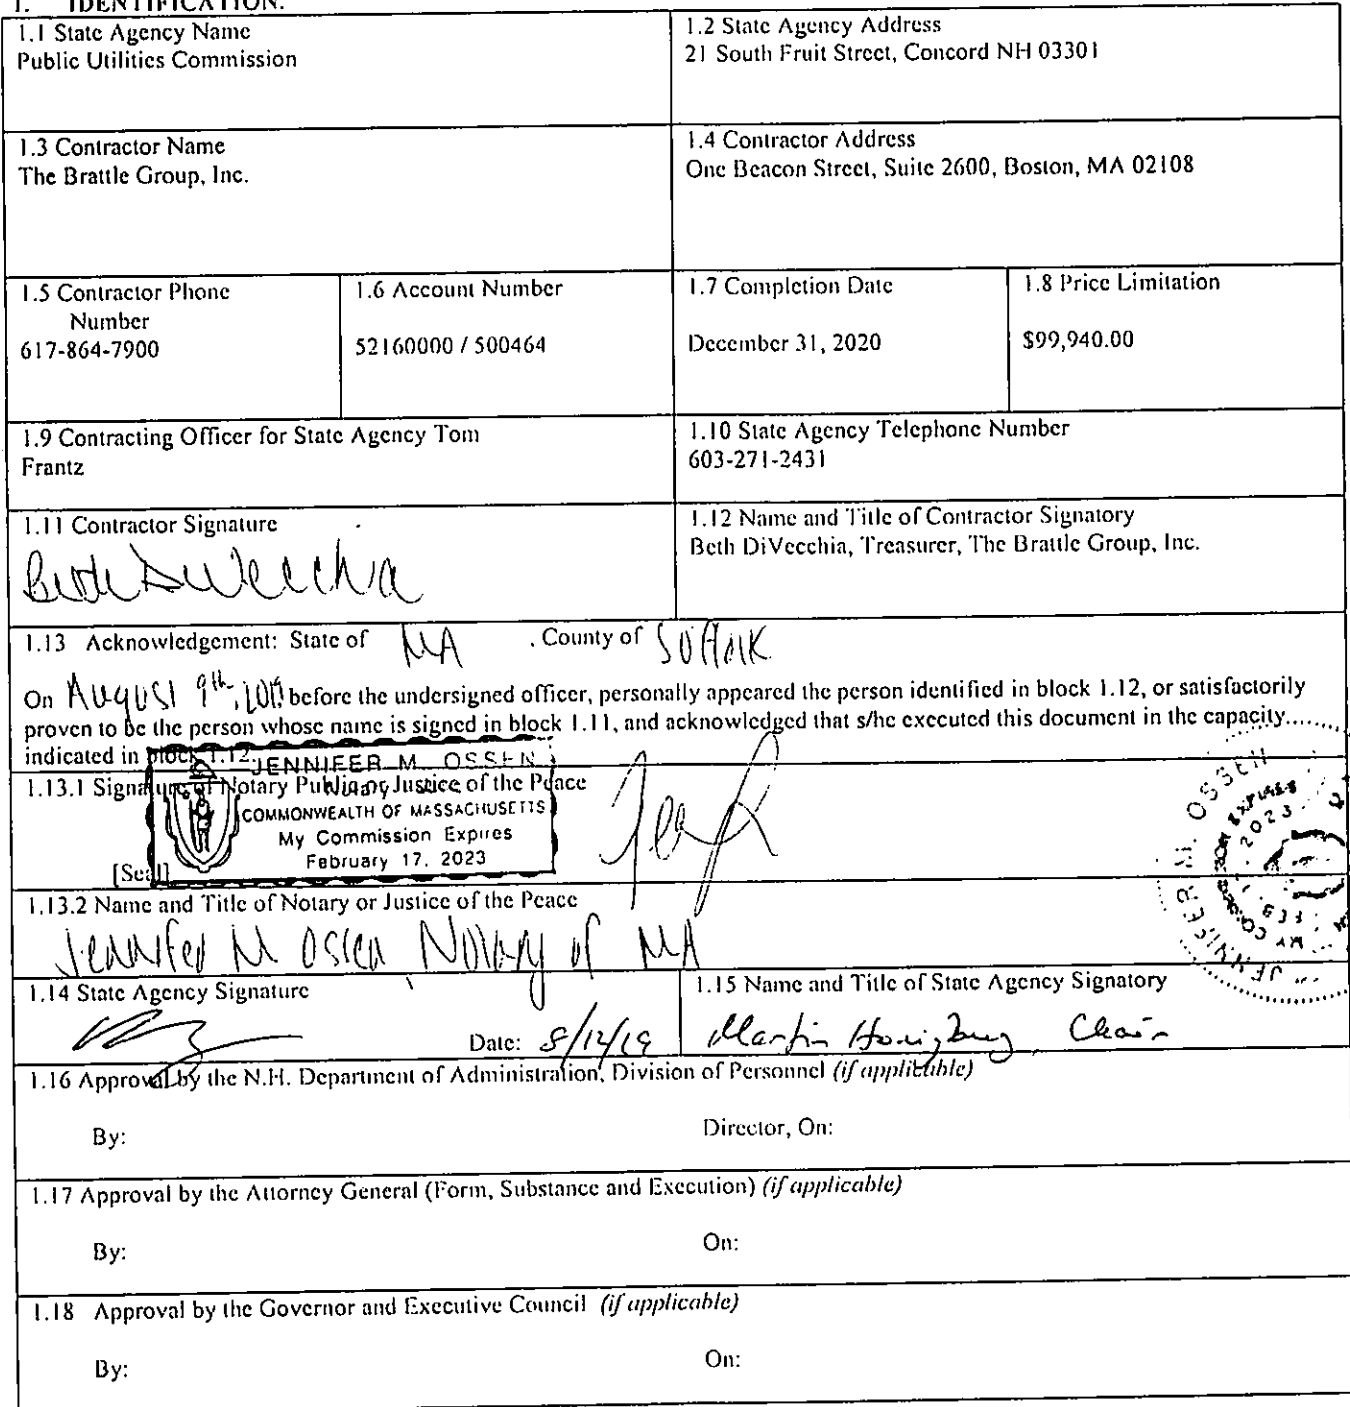 1. IDENTIFICATION.
1.1 State Agency Name
Public Utilities Commission
1.2 State Agency Address
21 South Fruit Street, Concord NH 03301
1.3 Contractor Name
The Brattle Group, Inc.
1.4 Contractor Address
One Beacon Street, Suite 2600, Boston, MA 02108
1.5 Contractor Phone
Number
617-864-7900
1.6 Account Number
52160000 / 500464
1.7 Completion Date
December 31, 2020
1.8 Price Limitation
$99,940.00
1.9 Contracting Officer for State Agency Tom
Frantz
1.10 State Agency Telephone Number
603-271-2431
1.11 Contractor Signature
Beth DiVecchia
1.12 Name and Title of Contractor Signatory
Beth DiVecchia, Treasurer, The Brattle Group, Inc.
1.13 Acknowledgement: State of MA , County of Suffolk
On August 9th, 2019 before the undersigned officer, personally appeared the person identified in block 1.12, or satisfactorily
proven to be the person whose name is signed in block 1.11, and acknowledged that s/he executed this document in the capacity
indicated in block 1.12.
1.13.1 Signature of Notary Public or Justice of the Peace
JENNIFER M. OSSEN
Notary Public
COMMONWEALTH OF MASSACHUSETTS
My Commission Expires
February 17, 2023
[Seal]
JENNIFER M. OSSEN
1.13.2 Name and Title of Notary or Justice of the Peace
Jennifer M Ossen Notary of MA
1.14 State Agency Signature
Date: 8/12/19
1.15 Name and Title of State Agency Signatory
Martin Honigberg, Chair
1.16 Approval by the N.H. Department of Administration, Division of Personnel (if applicable)
By:
Director, On:
1.17 Approval by the Attorney General (Form, Substance and Execution) (if applicable)
By:
On:
1.18 Approval by the Governor and Executive Council (if applicable)
By:
On: